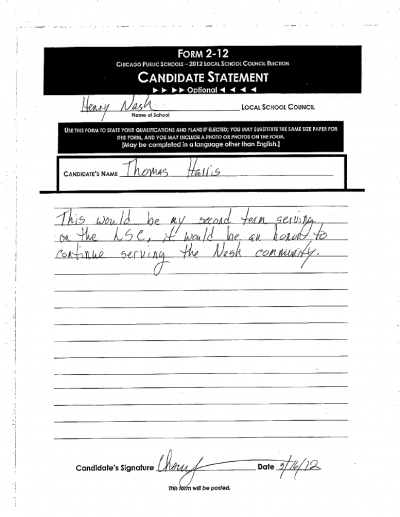 FORM 2-12
CHICAGO PUBLIC SCHOOLS – 2012 LOCAL SCHOOL COUNCIL ELECTION
CANDIDATE STATEMENT
► ► ► ► Optional ◄ ◄ ◄ ◄
Henry Nash LOCAL SCHOOL COUNCIL
Name of School
USE THIS FORM TO STATE YOUR QUALIFICATIONS AND PLANS IF ELECTED; YOU MAY SUBSTITUTE THE SAME SIZE PAPER FOR
THIS FORM, AND YOU MAY INCLUDE A PHOTO OR PHOTOS ON THE FORM.
[May be completed in a language other than English.]
CANDIDATE'S NAME Thomas Harris
This would be my second term serving
on the LSC, it would be an honor to
continue serving the Nash community.
Candidate's Signature Date
This form will be posted.